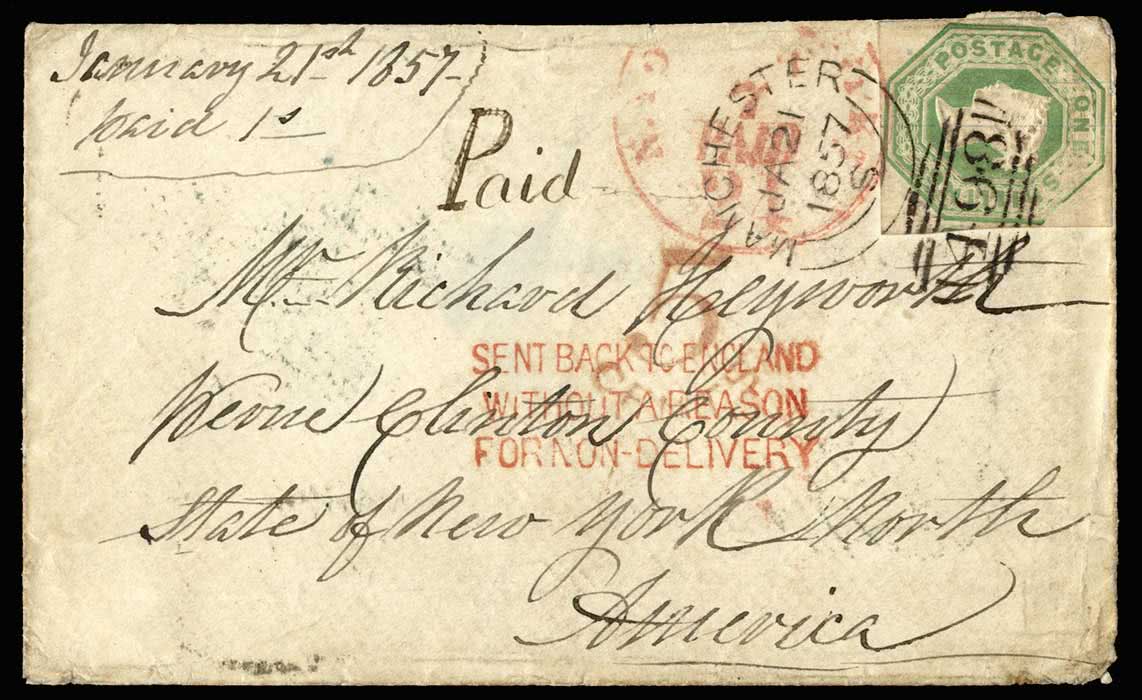 January 21st 1857
paid 1s
Paid
MANCHESTER
JA 21
1857
S
POSTAGE
ONE
498
Mr Richard Heyworth
SENT BACK TO ENGLAND
WITHOUT A REASON
FOR NON-DELIVERY
Clinton County
State of New York North
America